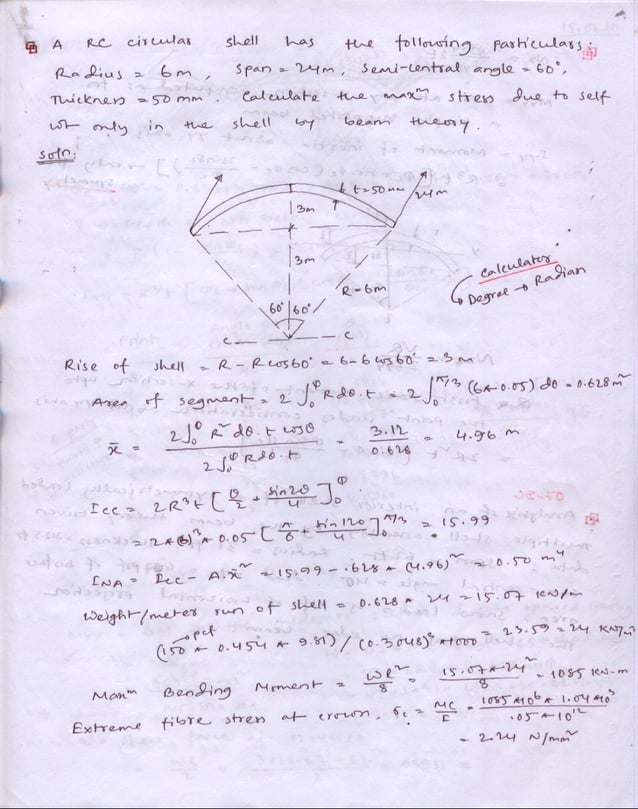 A RC circular shell has the following particulars:
Radius = 6m, span = 24m, semi-central angle = 60°,
Thickness = 50 mm. Calculate the maxm stress due to self
wt only in the shell by beam theory.
soln:
t=50mm
24m
3m
3m
R=6m
60° 60°
C C
calculator
Degree → Radian
Rise of shell = R - Rcos60° = 6-6cos60° = 3m
Area of segment = 2∫₀^φ Rdθ.t = 2∫₀^π/3 (6*0.05) dθ = 0.628m²
x̄ = 2∫₀^φ R²dθ.t cosθ / 2∫₀^φ Rdθ.t = 3.12/0.628 = 4.96 m
Icc = 2R³t [θ/2 + sin2θ/4]₀^φ
= 2*(6)³*0.05 [π/6 + sin120/4]₀^π/3 = 15.99
INA = Icc - A.x̄² = 15.99 - .628*(4.96)² = 0.50 m⁴
Weight/meter run of shell = 0.628 * 24 = 15.07 KN/m
pcf
(150 * 0.454 * 9.81) / (0.3048)³ *1000 = 23.59 = 24 KN/m³
Maxm Bending Moment = wl²/8 = 15.07*24²/8 = 1085 KN-m
Extreme fibre stress at crown, σc = MC/I = 1085*10⁶ * 1.04*10³ / .05*10¹²
= 2.24 N/mm²